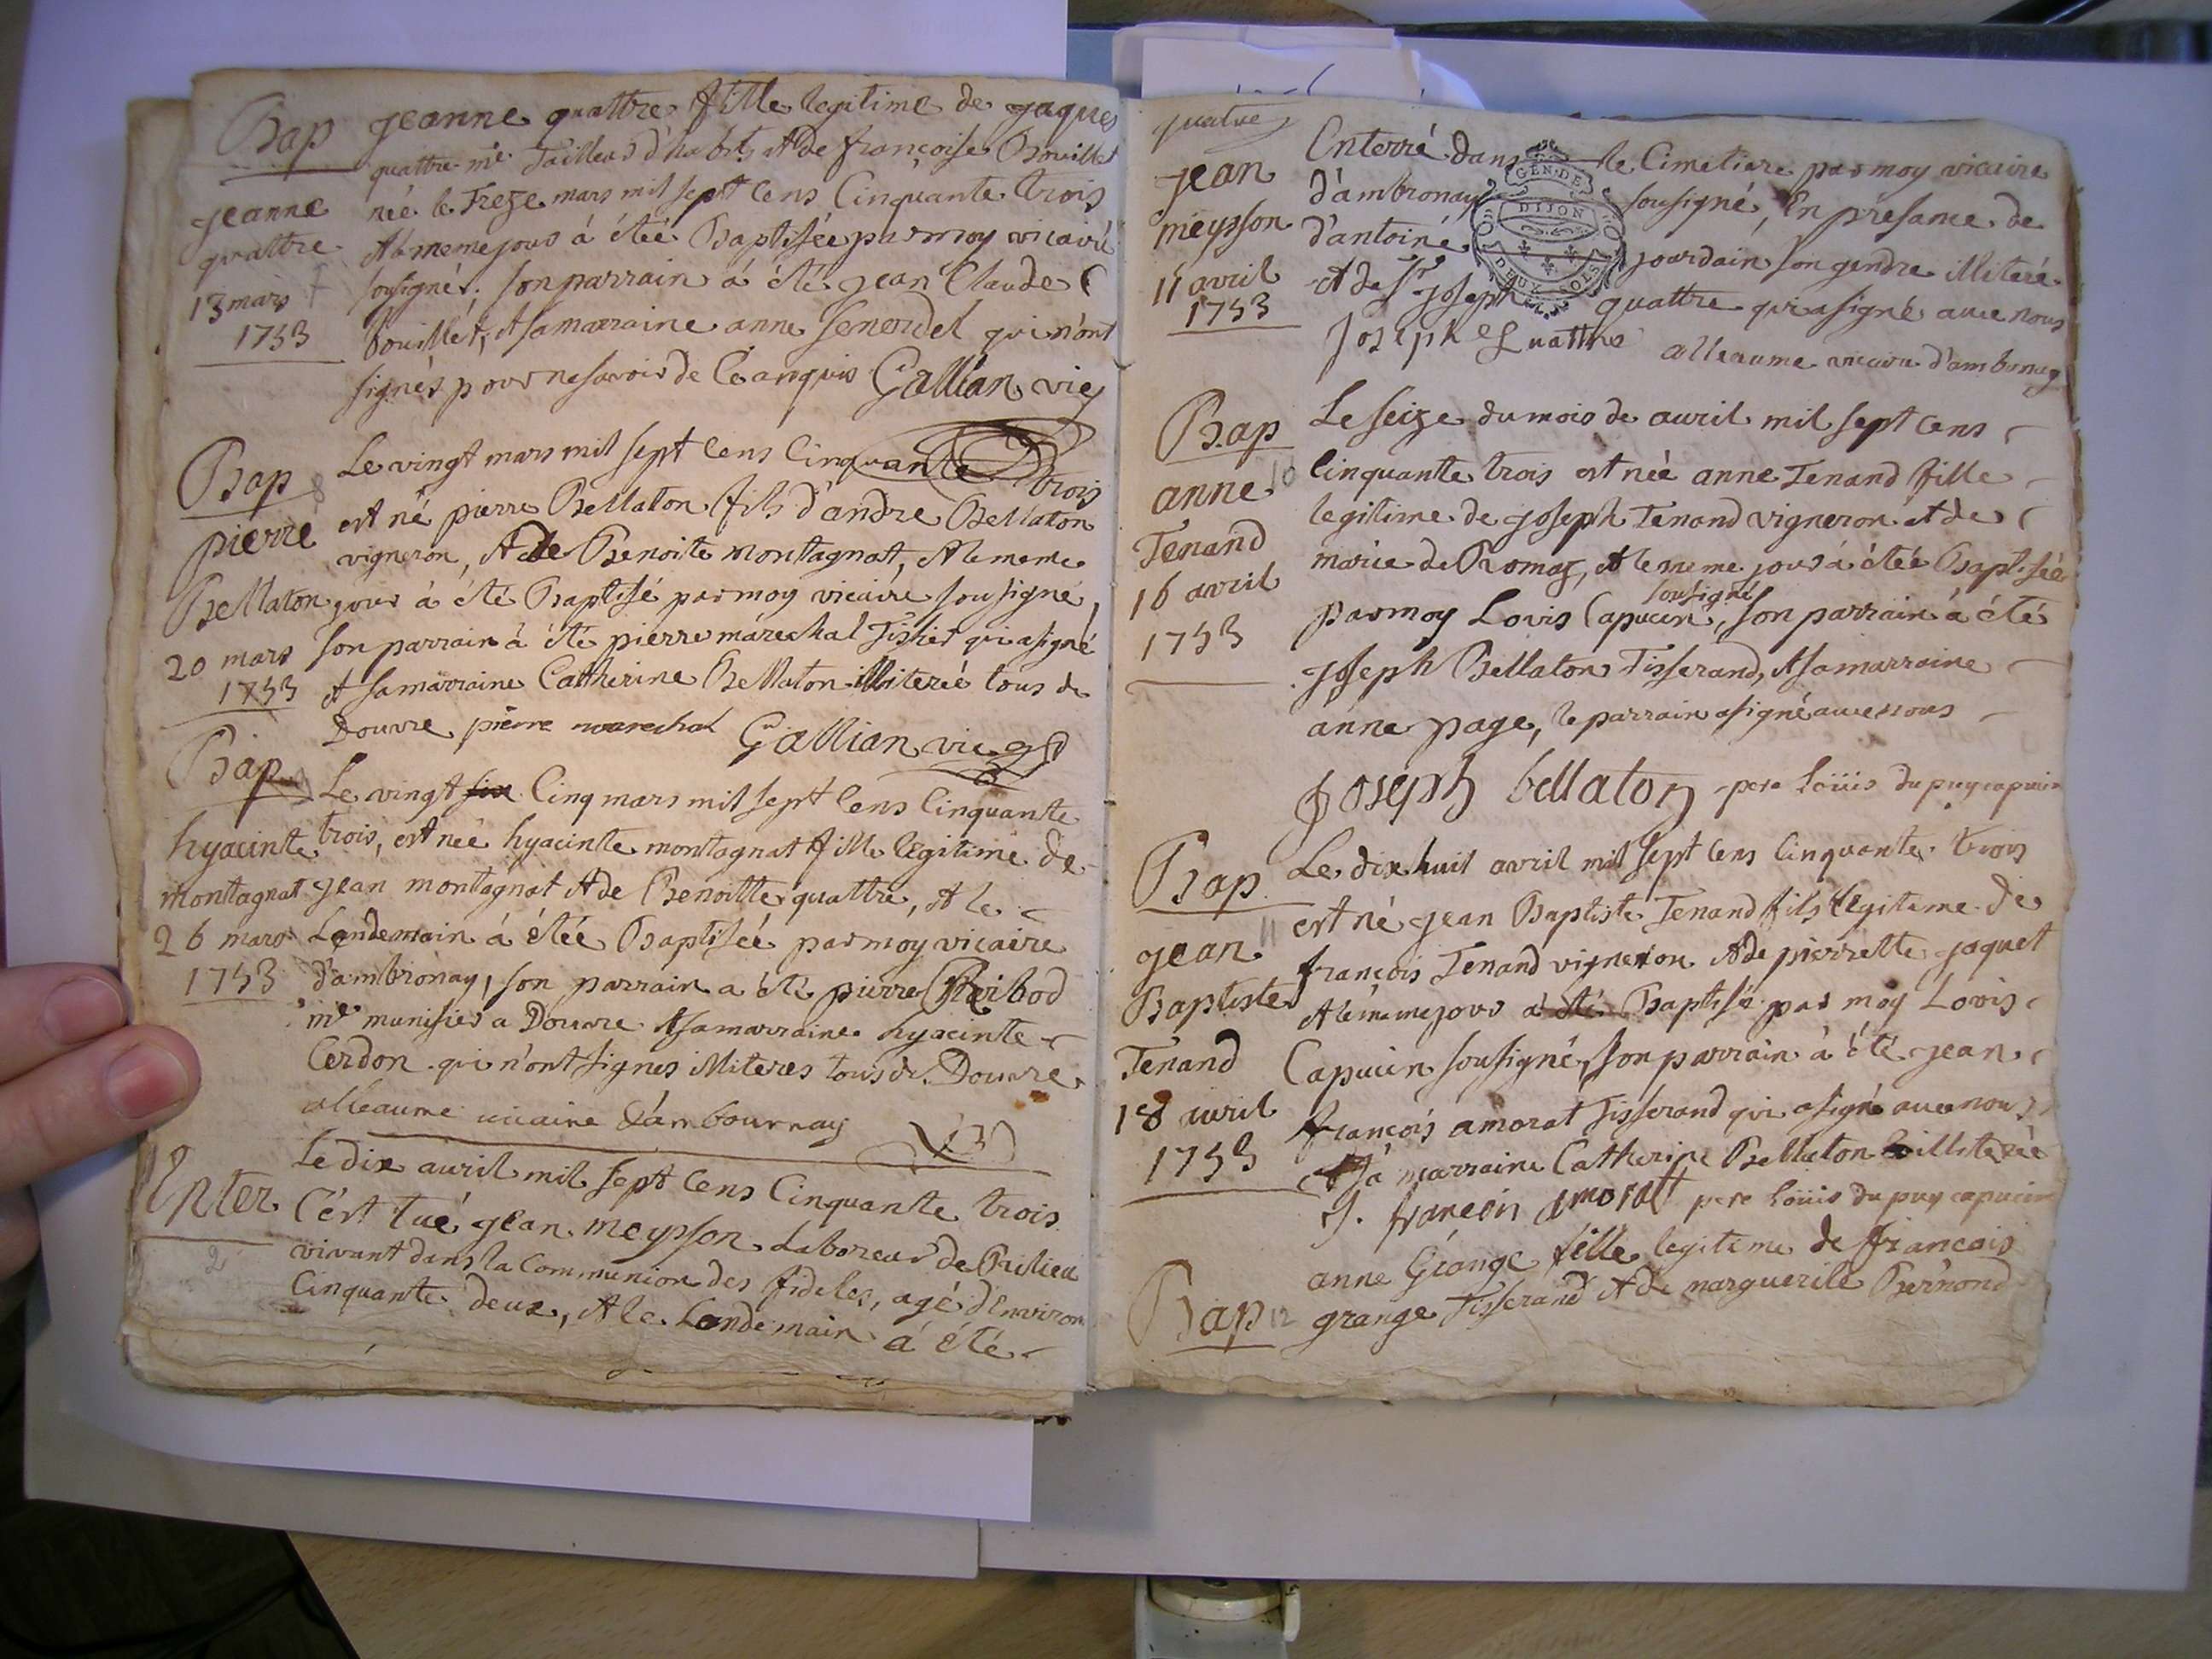 Bap
jeanne
quattre
13 mars
1753
jeanne quattre fille legitime de jaques
quattre me Tailleur d'habits et de françoise Bouillet
née le Treze mars mil sept cens Cinquante trois
et le meme jour à étée Baptisée par moy vicaire
sousigné, son parrain à été jean Claude
bouillet, et sa marraine anne Senerdel qui n'ont
signés pour ne savoir de ce enquis Gallian vic
Bap
pierre
Bellaton
20 mars
1753
Le vingt mars mil sept cens Cinquante trois
est né pierre Bellaton fils d'andre Bellaton
vigneron, et de Benoite montagnat, et le meme
jour à été Baptisé par moy vicaire sousigné,
son parrain à été pierre marechal Tissier qui a signé
et sa marraine Catherine Bellaton illiterée tous de
Douvre pierre marechal Gallian vic
Bap
hyacinte
montagnat
26 mars
1753
Le vingt six Cinq mars mil sept cens Cinquante
trois, est née hyacinte montagnat fille légitime de
jean montagnat et de Benoitte quattre, et le
Lendemain à étée Baptisée par moy vicaire
d'ambronay, son parrain a été pierre Ribod
me munisier a Douvre et sa marraine hyacinte
Cerdon qui n'ont signes illiteres tous de Douvre
alleaume vicaire d'ambournay
Enter
2
Le dix avril mil sept cens Cinquante trois
C'est tué jean meysson Laboreur de
vivant dans la Communion des fideles, agé d'Environ
Cinquante deux, et le Lendemain à été
quatre
jean
meysson
11 avril
1753
Enterré dans le Cimetiere par moy vicaire
d'ambronay sousigné, En presance de
d'antoine jourdain son gendre illiteré
et de Sr joseph quattre qui a signé avec nous
Joseph Quattre alleaume vicaire d'ambronay
GEN. DE
DIJON
DEUX SOLS
Bap
10
anne
Tenand
16 avril
1753
Le seize du mois de avril mil sept cens
cinquante trois est née anne Tenand fille
legitime de joseph Tenand vigneron et de
marie de Romaz, et le meme jour à étée Baptisée
sousigné
par moy Louis Capucin, son parrain à été
joseph Bellaton Tisserand, et sa marraine
anne page, le parrain a signé avec nous
Joseph bellaton pere Loüis dupuy capucin
Bap
11
jean
Baptiste
Tenand
18 avril
1753
Le dix huit avril mil sept cens Cinquante trois
est né jean Baptiste Tenand fils légitime de
françois Tenand vigneron et de pierrette jaquet
et le meme jour à été Baptisé par moy Louis
Capucin sousigné, son parrain à été jean
françois amorat Tisserand qui a signé avec nous
et sa marraine Catherine Bellaton illiterée
J. françois amorat pere Loüis dupuy capucin
Bap 12
anne Grange fille legitime de francais
grange Tisserand et de marguerite Bernond